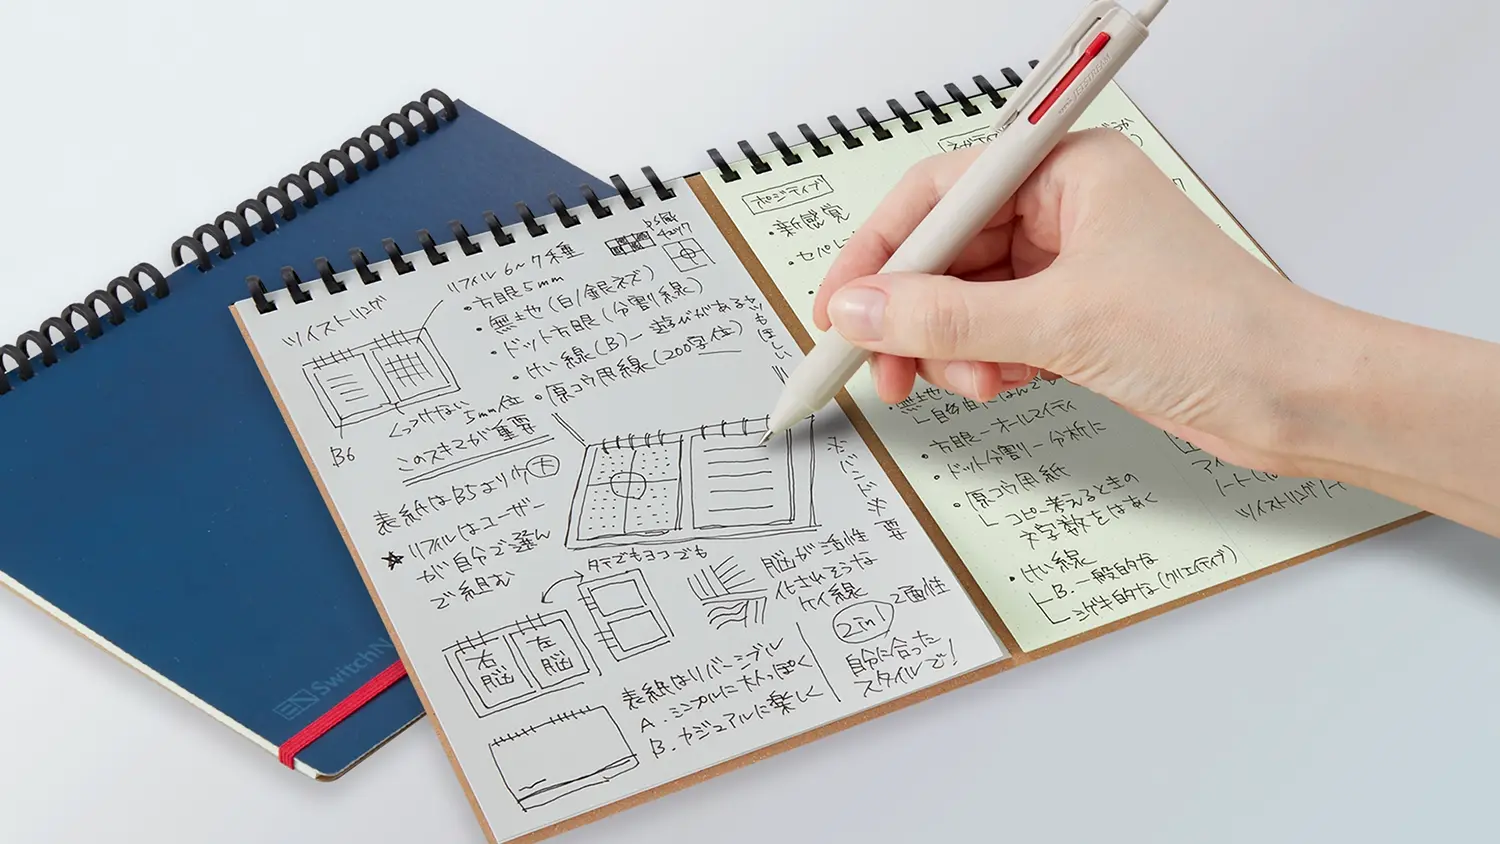 ツイストリング
リフィル6〜7種
・方眼5mm
・無地(白/銀ネズ)
・ドット方眼(分割線)
・けい線(B)ー遊びがある
・原コウ用線(200字位)
もほしい
5mm位
くっつけない
このスキマが重要
B6
表紙はB5より少大
★リフィルはユーザー
が自分で選ん
で組む
タテでもヨコでも
右脳
左脳
脳が活性
化されそうな
ケイ線
※バンド必要
2in1
2面性
自分に合った
スタイルで!
表紙はリバーシブル
A.シンプルに大人っぽく
B.カジュアルに楽しく
ポジティブ
・新感覚
・セパレ
・無地
└自由に
・方眼ーオールマイティ
・ドット分割ー分析に
・原コウ用紙
└コピー考えるときの
文字数をはあく
・けい線
B.一般的な
シゲキ的な(クリエイティブ)
ツイストリングノート
SwitchN
JETSTREAM